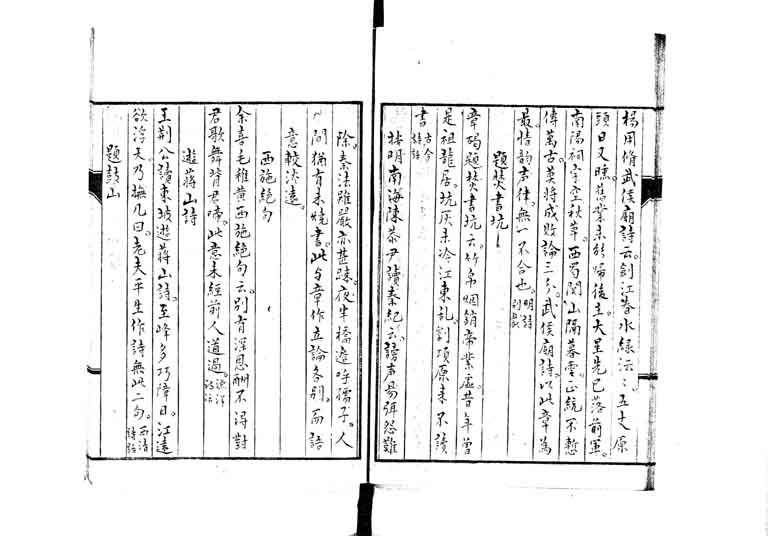 楊用脩武侯廟詩云。劍江春水綠沄沄五丈原
頭日又曛。舊業未能歸後主。大星先已落前軍。
南陽祠宇空秋草。西蜀関山隔暮雲。正統不慙
傳萬古。莫將成敗論三分。武侯廟詩。以此章為
最。情韵音律。無一不合也。明詩別裁
題焚書坑
章碣題焚書坑云。竹帛烟銷帝業虛。昔年曾
是祖龍居。坑灰未冷江東亂。劉項原来不讀
書古今詩話
按明南海陳恭尹讀秦紀云。謗声易弭怨難
除。秦法雖嚴亦甚疎。夜半橋邊呼孺子。人
間猶有未燒書。此与章作立論各別。而語
意較淡遠。
西施絕句
余喜毛稚黃西施絕句云。別有深恩酬不得對
君歌舞背君啼。此意未經前人道過。漁洋詩話
遊蔣山詩
王荆公讀東坡遊蔣山詩。至峰多巧障日。江遠
欲浮天。乃撫几曰。老夫平生作詩無此二句。西清詩話
題鼓山